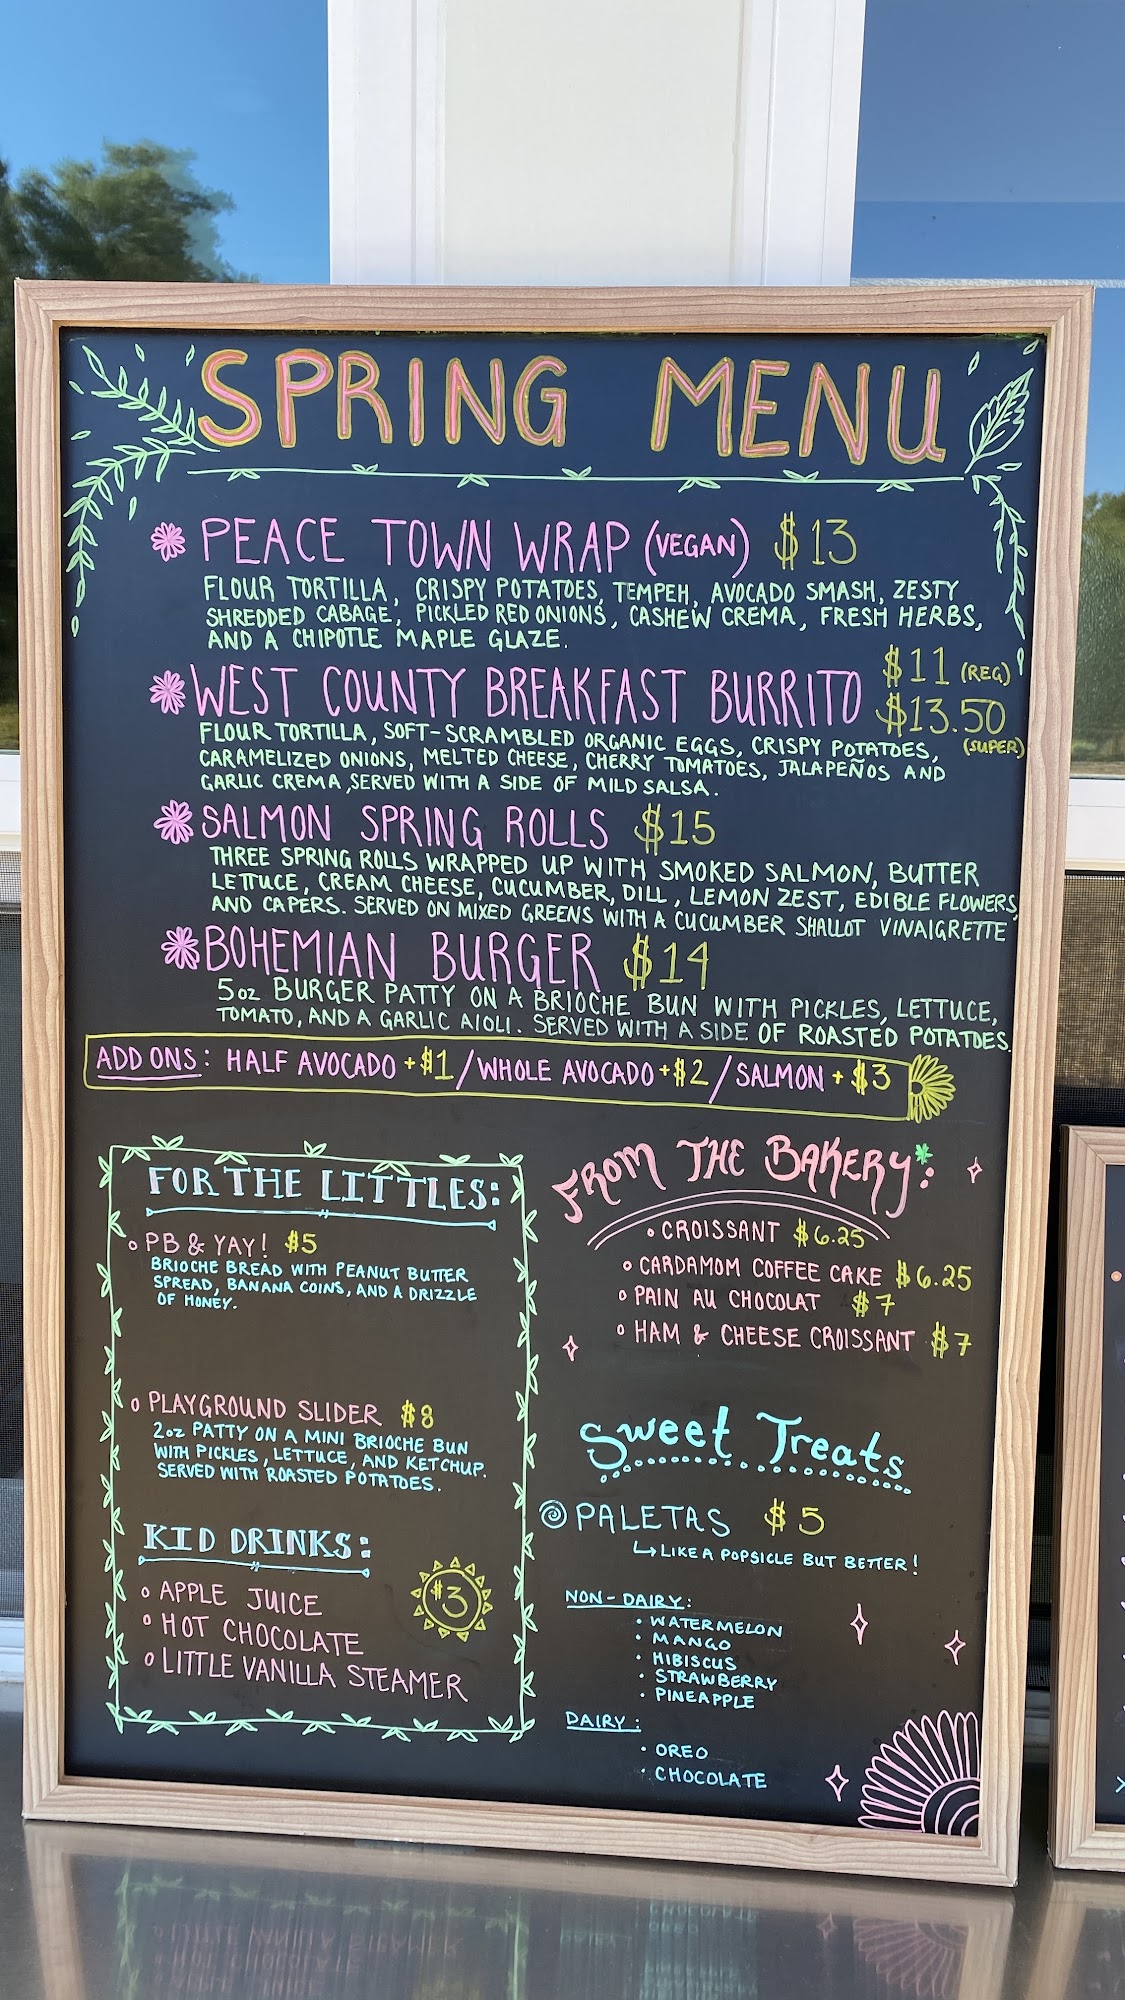 SPRING MENU
PEACE TOWN WRAP (VEGAN) $13
FLOUR TORTILLA, CRISPY POTATOES, TEMPEH, AVOCADO SMASH, ZESTY
SHREDDED CABAGE, PICKLED RED ONIONS, CASHEW CREMA, FRESH HERBS,
AND A CHIPOTLE MAPLE GLAZE.
WEST COUNTY BREAKFAST BURRITO $11 (REG)
$13.50 (SUPER)
FLOUR TORTILLA, SOFT-SCRAMBLED ORGANIC EGGS, CRISPY POTATOES,
CARAMELIZED ONIONS, MELTED CHEESE, CHERRY TOMATOES, JALAPEÑOS AND
GARLIC CREMA, SERVED WITH A SIDE OF MILD SALSA.
SALMON SPRING ROLLS $15
THREE SPRING ROLLS WRAPPED UP WITH SMOKED SALMON, BUTTER
LETTUCE, CREAM CHEESE, CUCUMBER, DILL, LEMON ZEST, EDIBLE FLOWERS,
AND CAPERS. SERVED ON MIXED GREENS WITH A CUCUMBER SHALLOT VINAIGRETTE
BOHEMIAN BURGER $14
5oz BURGER PATTY ON A BRIOCHE BUN WITH PICKLES, LETTUCE,
TOMATO, AND A GARLIC AIOLI. SERVED WITH A SIDE OF ROASTED POTATOES.
ADD ONS: HALF AVOCADO +$1 / WHOLE AVOCADO +$2 / SALMON + $3
FOR THE LITTLES:
PB & YAY! $5
BRIOCHE BREAD WITH PEANUT BUTTER
SPREAD, BANANA COINS, AND A DRIZZLE
OF HONEY.
PLAYGROUND SLIDER $8
2oz PATTY ON A MINI BRIOCHE BUN
WITH PICKLES, LETTUCE, AND KETCHUP.
SERVED WITH ROASTED POTATOES.
KID DRINKS:
$3
APPLE JUICE
HOT CHOCOLATE
LITTLE VANILLA STEAMER
FROM THE BAKERY:
CROISSANT $6.25
CARDAMOM COFFEE CAKE $6.25
PAIN AU CHOCOLAT $7
HAM & CHEESE CROISSANT $7
Sweet Treats
PALETAS $5
LIKE A POPSICLE BUT BETTER!
NON-DAIRY:
• WATERMELON
• MANGO
• HIBISCUS
• STRAWBERRY
• PINEAPPLE
DAIRY:
• OREO
• CHOCOLATE